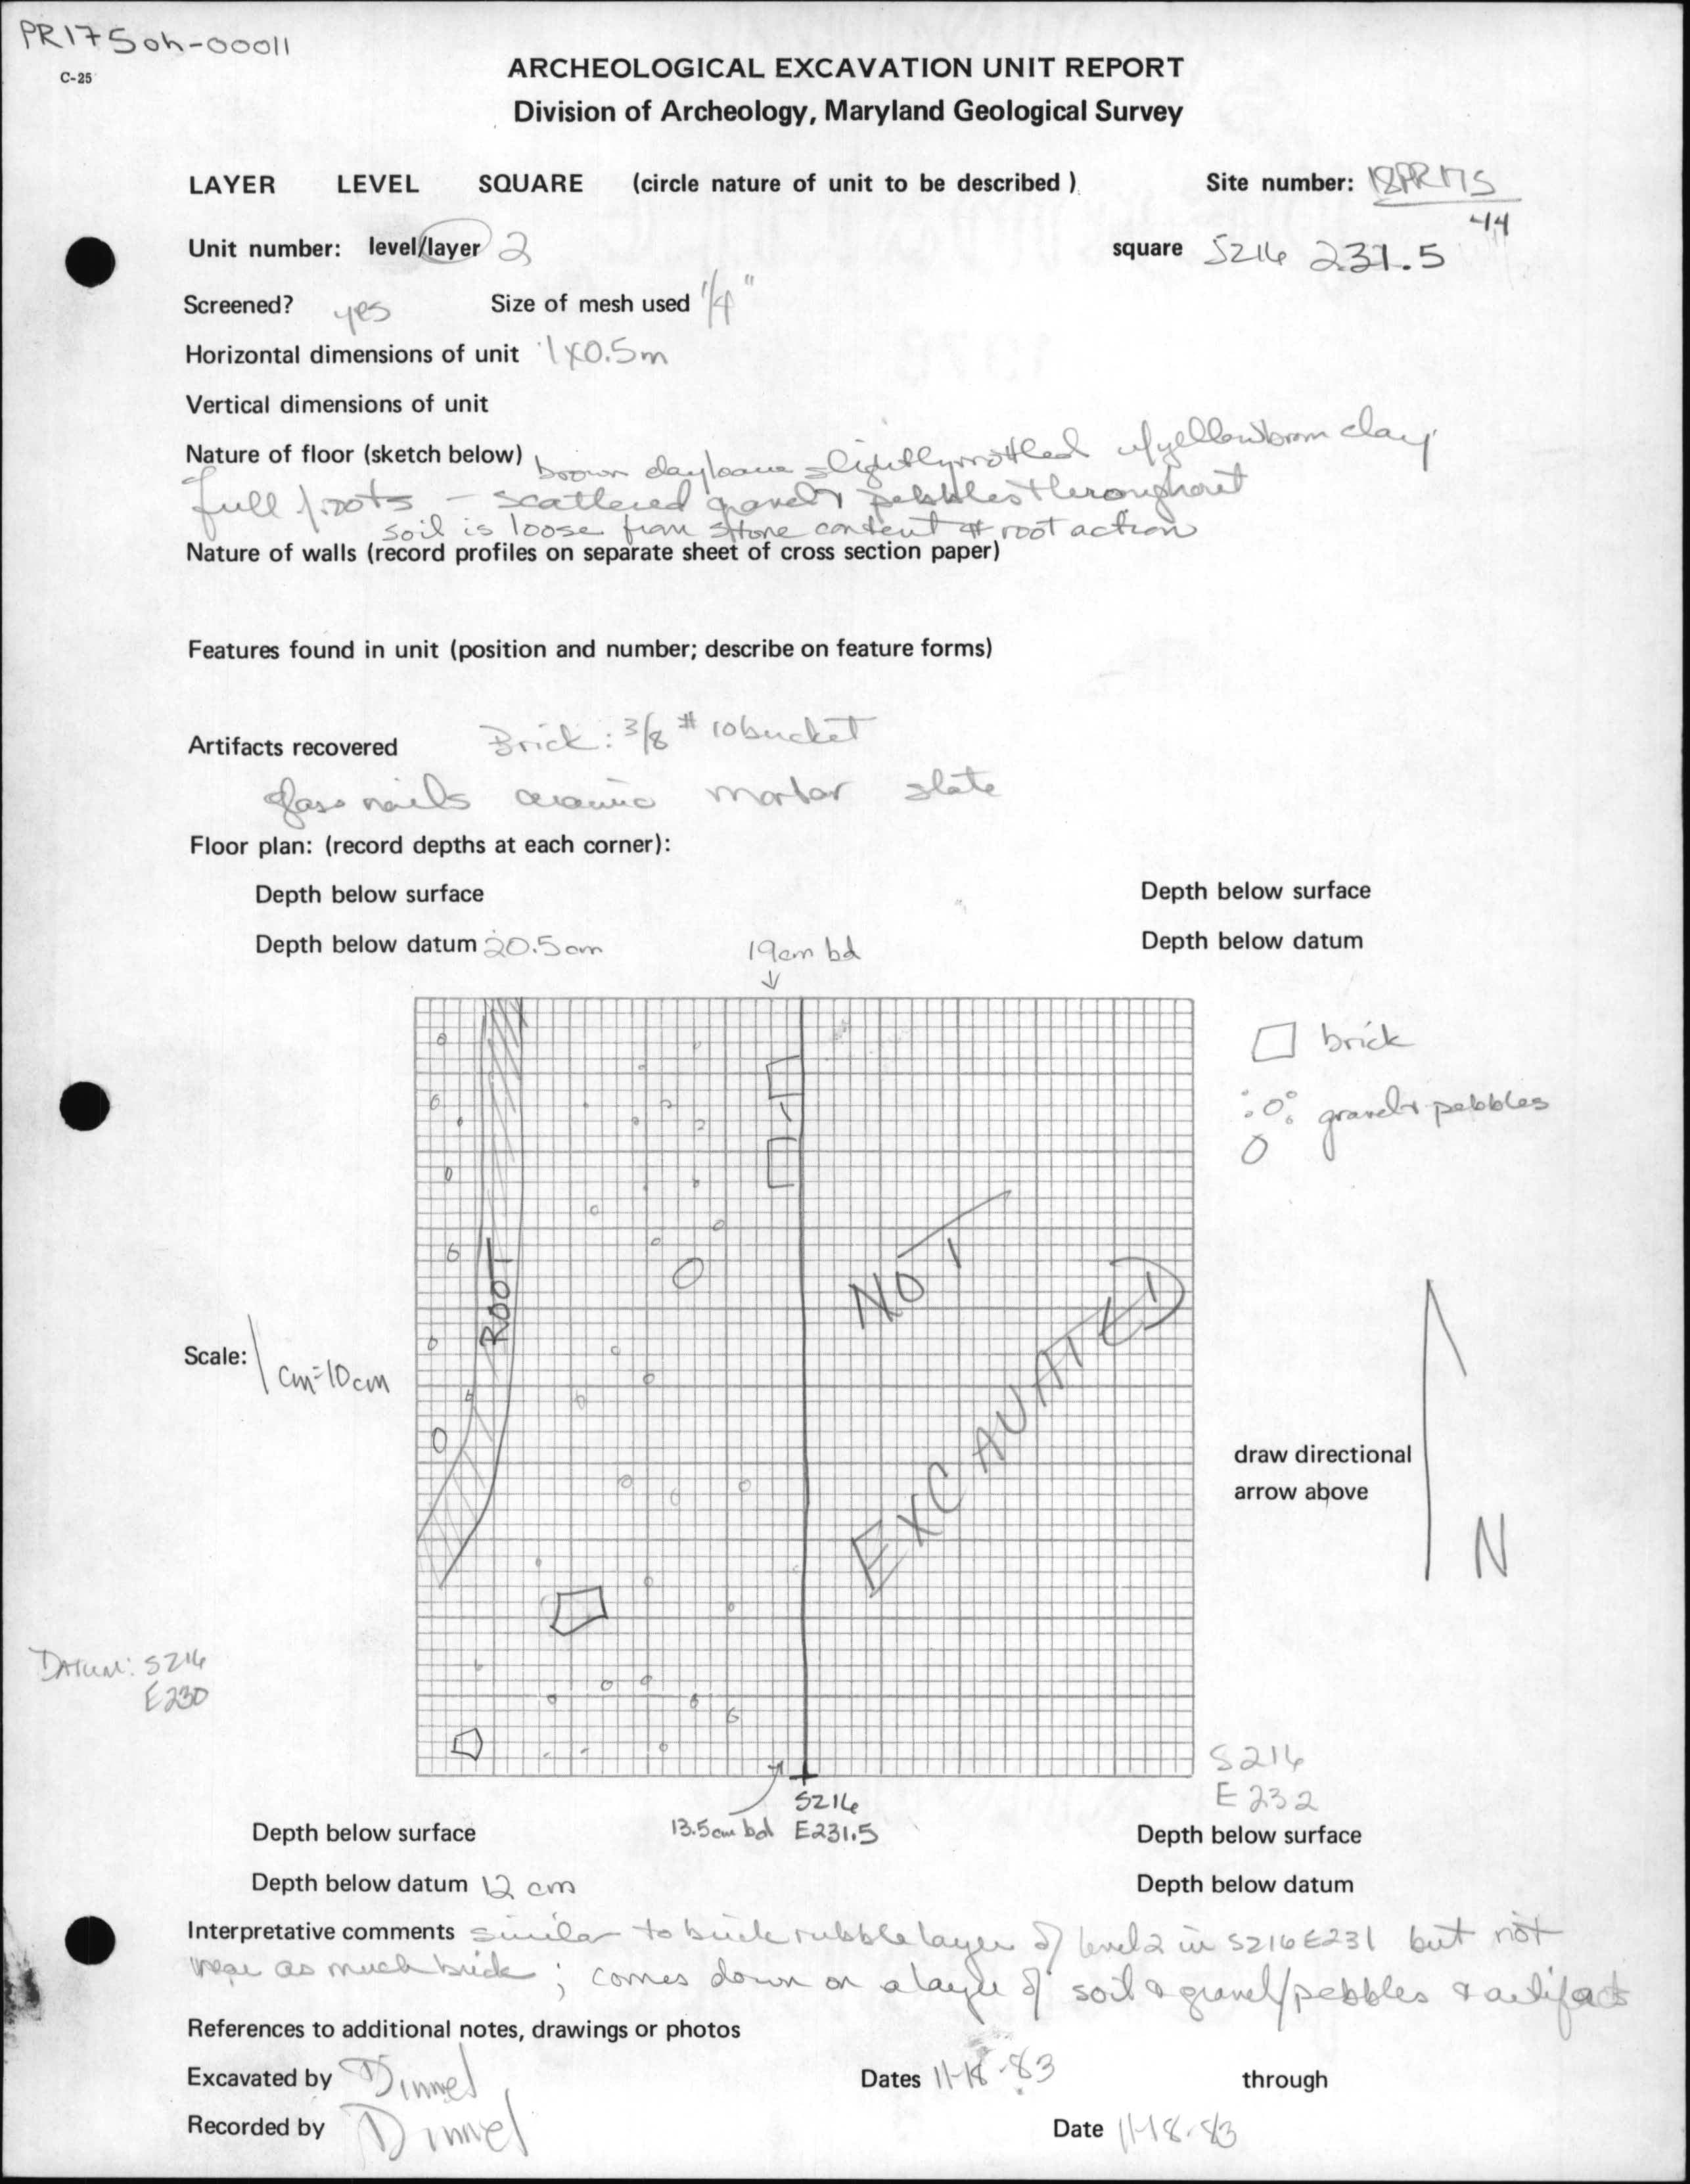 PR175oh-00011
C-25
ARCHEOLOGICAL EXCAVATION UNIT REPORT
Division of Archeology, Maryland Geological Survey
LAYER LEVEL SQUARE (circle nature of unit to be described) Site number: 18PR175
44
Unit number: level/layer 2 square S216 231.5
Screened? yes Size of mesh used 1/4"
Horizontal dimensions of unit 1x0.5m
Vertical dimensions of unit
Nature of floor (sketch below) brown clay loam slightly mottled w/yellow brown clay
full of roots - scattered gravel & pebbles throughout
soil is loose from stone content & root action
Nature of walls (record profiles on separate sheet of cross section paper)
Features found in unit (position and number; describe on feature forms)
Artifacts recovered Brick: 3/8 #10 bucket
glass nails ceramic mortar slate
Floor plan: (record depths at each corner):
Depth below surface Depth below surface
Depth below datum 20.5cm 19cm bd Depth below datum
brick
gravel & pebbles
ROOT
NOT
EXCAVATED
Scale: 1 cm=10cm
draw directional
arrow above
N
DATUM: S216
E230
S216
E232
S216
13.5cm bd E231.5
Depth below surface Depth below surface
Depth below datum 12 cm Depth below datum
Interpretative comments similar to brick rubble layer of level 2 in S216E231 but not
near as much brick; comes down on a layer of soil & gravel/pebbles & artifacts
References to additional notes, drawings or photos
Excavated by Dinnel Dates 11-18-83 through
Recorded by Dinnel Date 11-18-83